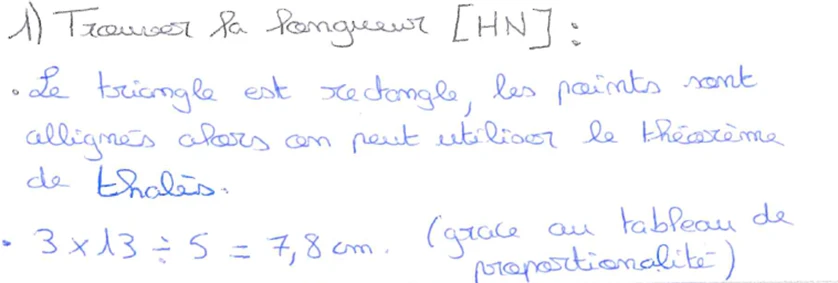 1) Trouver la longueur [HN] :
• Le triangle est rectangle, les points sont
allignés alors on peut utiliser le théorème
de thalès.
• 3 × 13 ÷ 5 = 7,8 cm. (grace au tableau de
proportionalité)